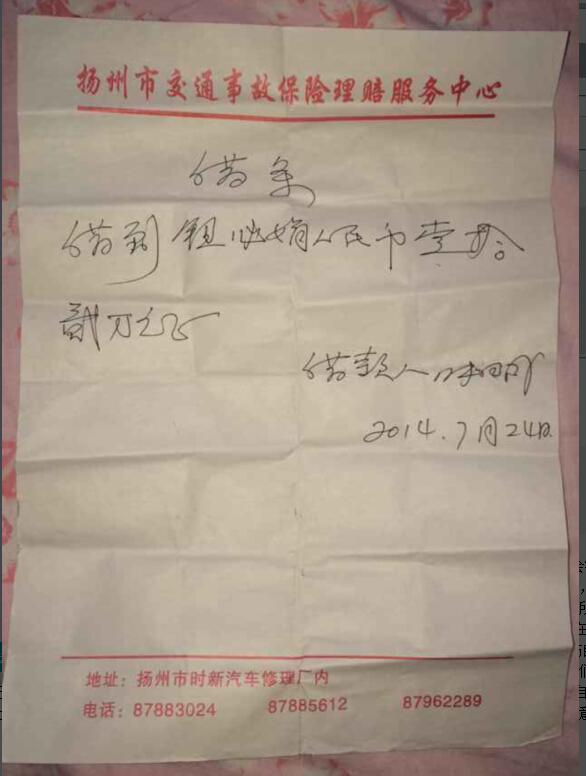 扬州市交通事故保险理赔服务中心
借条
借到钮 娟人民币壹拾
贰万元正
借款人
2014.7月24日.
地址：扬州市时新汽车修理厂内
电话：87883024 87885612 87962289